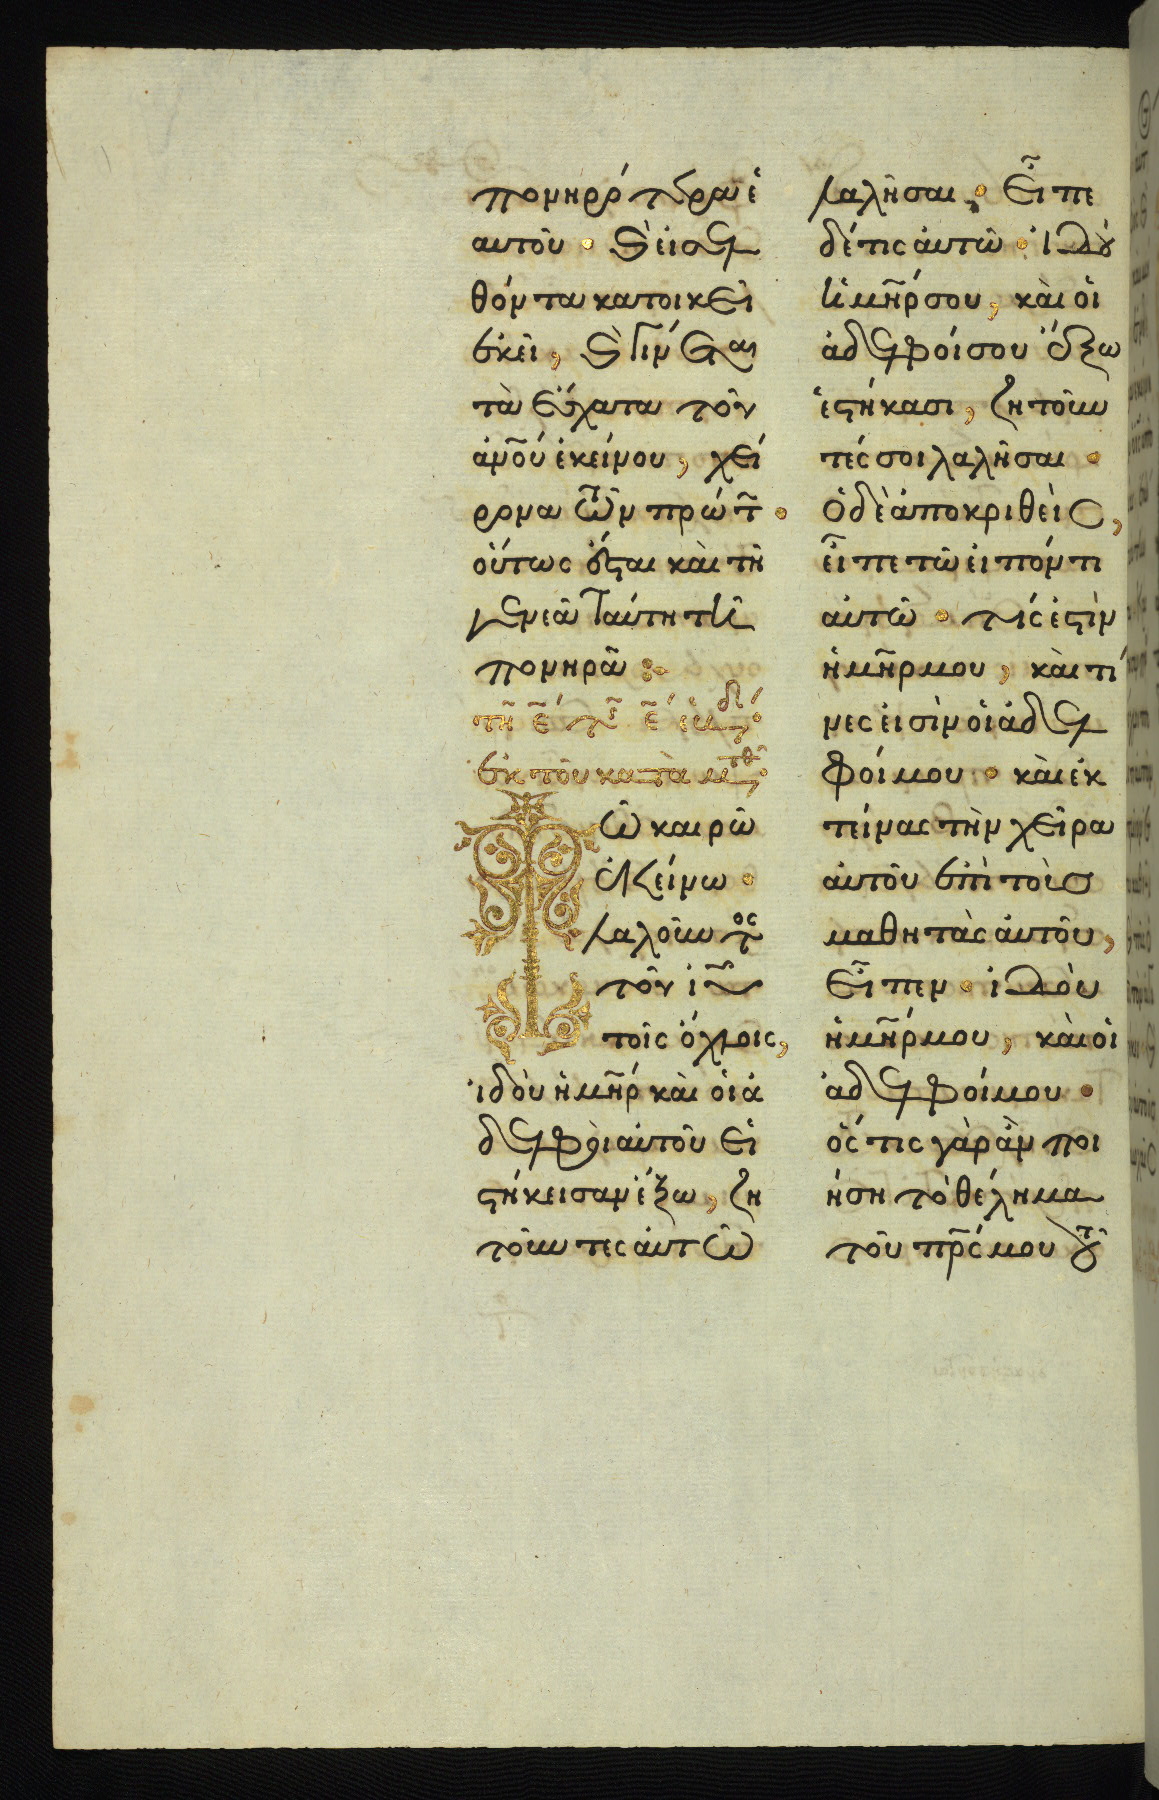 πονηρότερα ἑ
αυτοῦ · καὶ εἰσελ
θόντα κατοικεῖ
ἐκεῖ, καὶ γίνεται
τὰ ἔσχατα τοῦ
ἀνου ἐκείνου, χεί
ρονα τῶν πρώτ ·
οὕτως ἔσται καὶ τῆ
γενεᾶ ταύτη τῆ
πονηρᾶ :
ἐκ τοῦ κατὰ ματθ
Τῶ καιρῶ
ἐκείνω ·
λαλοῦντος
τοῦ ιυ
τοῖς ὄχλοις,
ἰδοὺ ἡ μηρ καὶ οἱ ἀ
δελφοὶ αὐτοῦ εἱ
στήκεισαν ἔξω, ζη
τοῦντες αὐτῶ
λαλῆσαι · Εἶπε
δέ τις αὐτῶ · ἰδοὺ
ἡ μηρ σου, καὶ οἱ
ἀδελφοί σου ἔξω
ἑστήκασι, ζητοῦν
τές σοι λαλῆσαι ·
Ὁ δὲ ἀποκριθεὶς,
εἶπε τῶ εἰπόντι
αὐτῶ · τίς ἐστὶν
ἡ μηρ μου, καὶ τί
νες εἰσὶν οἱ ἀδελ
φοί μου · καὶ ἐκ
τείνας τὴν χεῖρα
αὐτοῦ ἐπὶ τοὺς
μαθητὰς αὐτοῦ,
εἶπεν · ἰδοὺ
ἡ μηρ μου, καὶ οἱ
ἀδελφοί μου ·
ὅς τις γὰρ ἂν ποι
ήση τὸ θέλημα
τοῦ πρς μου τοῦ